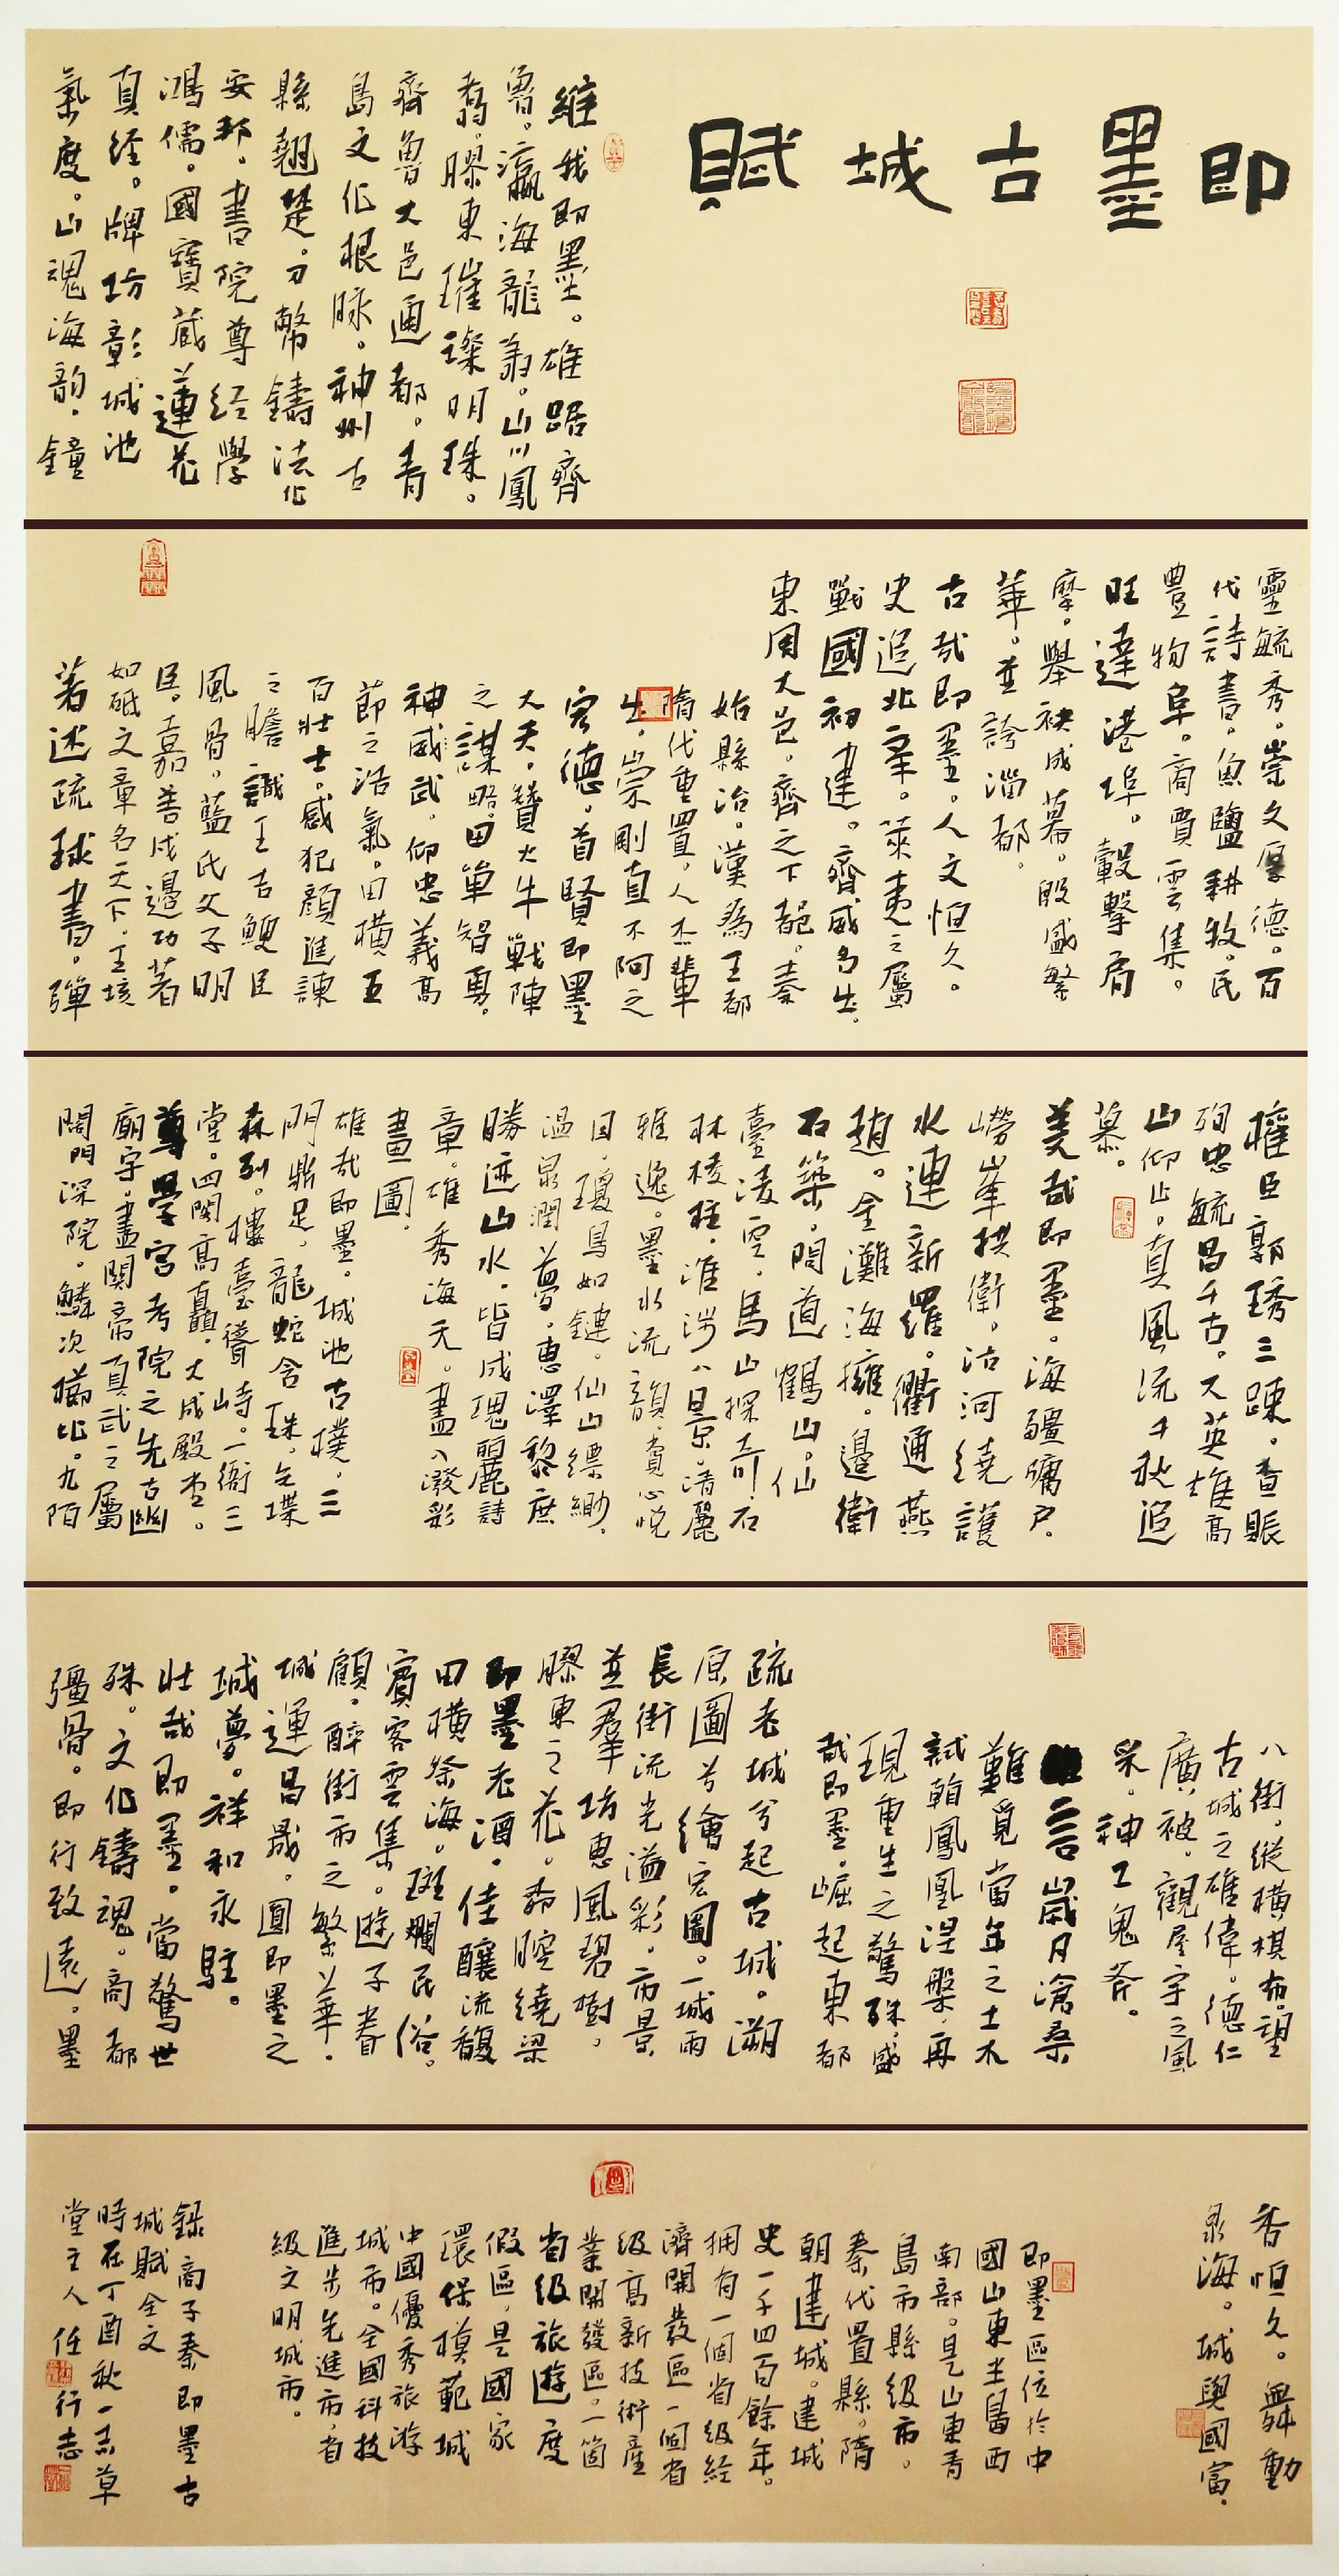 即墨古城賦
維我即墨。雄踞齊
魯。瀛海龍翔。山川鳳
翥。膠東璀璨明珠。
齊魯大邑通都。青
島文化根脉。神州古
縣翹楚。刀幣鑄法化
安邦。書院尊經學
鴻儒。國寶蔵蓮花
真經。牌坊彰城池
氣度。山魂海韵。鐘
靈毓秀。崇文厚德。百
代詩書。魚鹽耕牧。民
豊物阜。商賈雲集。
旺達港埠。轂擊肩
摩。舉袂成幕。殷盛繁
華。並誇淄都。
古哉即墨。人文恒久。
史追北辛。萊夷之屬
戰國初建。齊威名出。
東周大邑。齊之下都。秦
始縣治。漢為王都
隋代重置。人杰輩
出。崇剛直不阿之
宰德。首賢即墨
大夫。贊火牛戰陣
之謀略。田單智勇。
神威武。仰忠義高
節之浩氣。田横五
百壮士。感犯顔進諫
之膽識王吉鯁臣
風骨。藍氏父子明
臣。嘉善戍邊功著
如砥文章名天下。王垓
著述疏球書。彈
權臣郭琇三疎。查賬
殉忠毓昌千古。大英雄高
山仰止。真風流千秋追
慕。
美哉即墨。海疆牖户。
嶗峯拱衛。沽河繞護
水連新羅。衢通燕
趙。金灘海擁。邊衛
石築。問道鶴山。仙
臺淩空。馬山探奇。石
林棱柱。淮涉八景。清麗
雅逸。墨水流韻。賞心悦
目。瓊島如鏈。仙山縹緲。
温泉潤夢。惠澤黎庶
勝迹山水。皆成瑰麗詩
章。雄秀海天。盡入潑彩
畫圖。
雄哉即墨。城池古樸。三
門鼎足。龍蛇含珠。女堞
森列。樓臺聳峙。一衙三
堂。四闕高矗。大成殿堂。
尊學宫考院之先古幽
廟宇。盡關帝真武之屬
闊門深院。鱗次櫛比。九陌
八街。縱横棋布。望
古城之雄偉。德仁
廣被。觀屋宇之風
采。神工鬼斧。
言歲月滄桑
難覓當年之土木
試翰鳳凰涅槃。再
現重生之驚殊。盛
哉即墨。崛起東都
疏老城兮起古城。溯
原圖兮繪宏圖。一城兩
長街流光溢彩。市景
並羣坊惠風碧樹。
膠東之花。柳腔繞梁
即墨老酒。佳釀流馥
田横祭海。斑斕民俗。
賓客雲集。遊子眷
顧。醉街市之繁華。
城運昌晟。圓即墨之
城夢。祥和永駐。
壮哉即墨。當驚世
殊。文化鑄魂。商都
彊骨。即行致遠。墨
香恒久。舞動
泉海。城與國富。
即墨區位於中
國山東半島西
南部。是山東青
島市縣級市。
秦代置縣。隋
朝建城。建城
史一千四百餘年。
拥有一個省级經
濟開發區一個省
级高新技術産
業開發區。一箇
省级旅遊度
假區。是國家
環保模範城
中國優秀旅游
城市。全國科技
進步先進市。省
級文明城市。
録高子秦即墨古
城賦全文
時在丁酉秋一志草
堂主人任行志